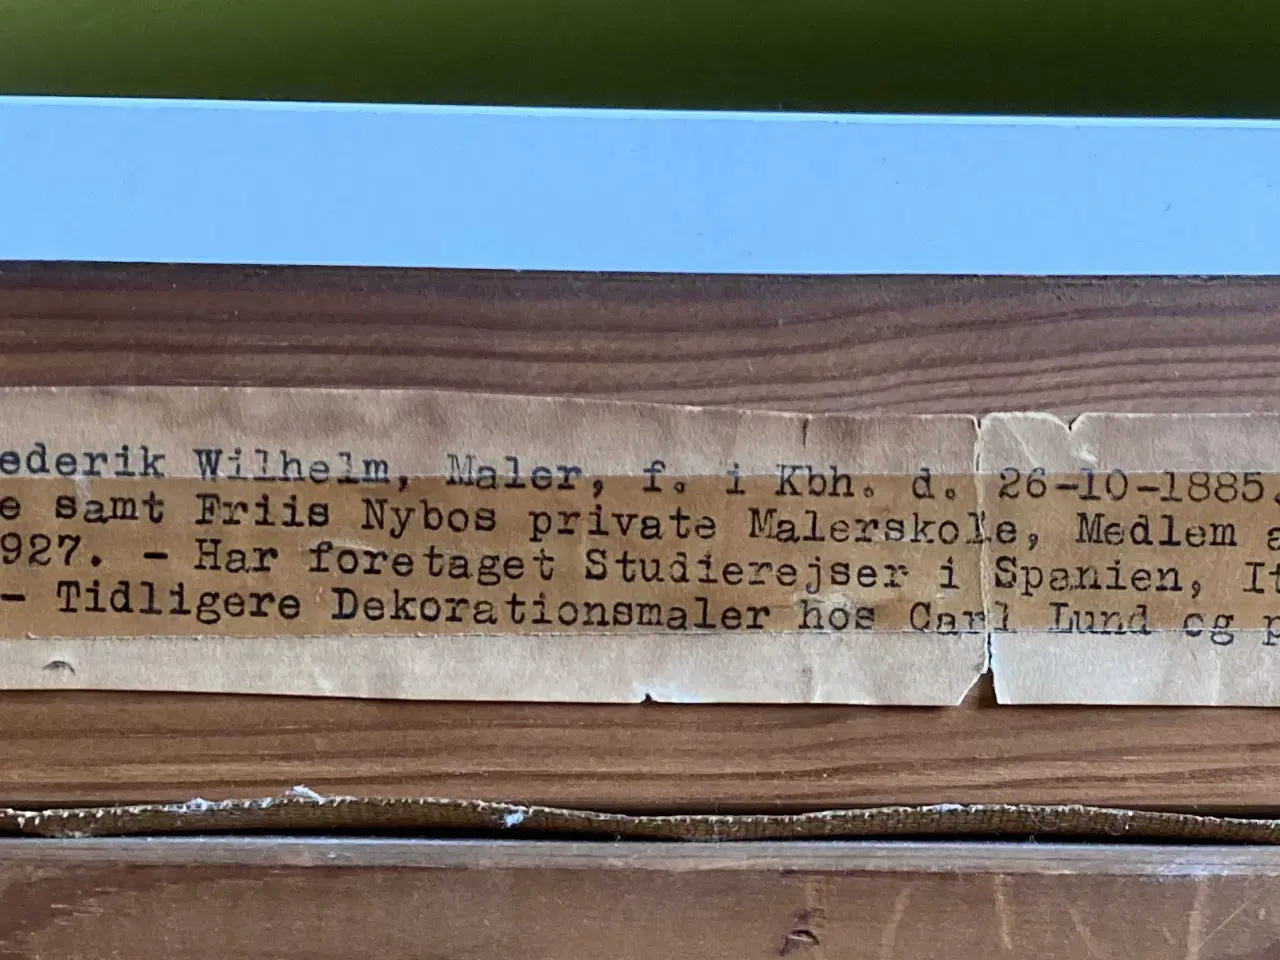 ederik Wilhelm, Maler, f. i Kbh. d. 26-10-1885.
e samt Friis Nybos private Malerskole, Medlem a
927. - Har foretaget Studierejser i Spanien, It
- Tidligere Dekorationsmaler hos Carl Lund og p